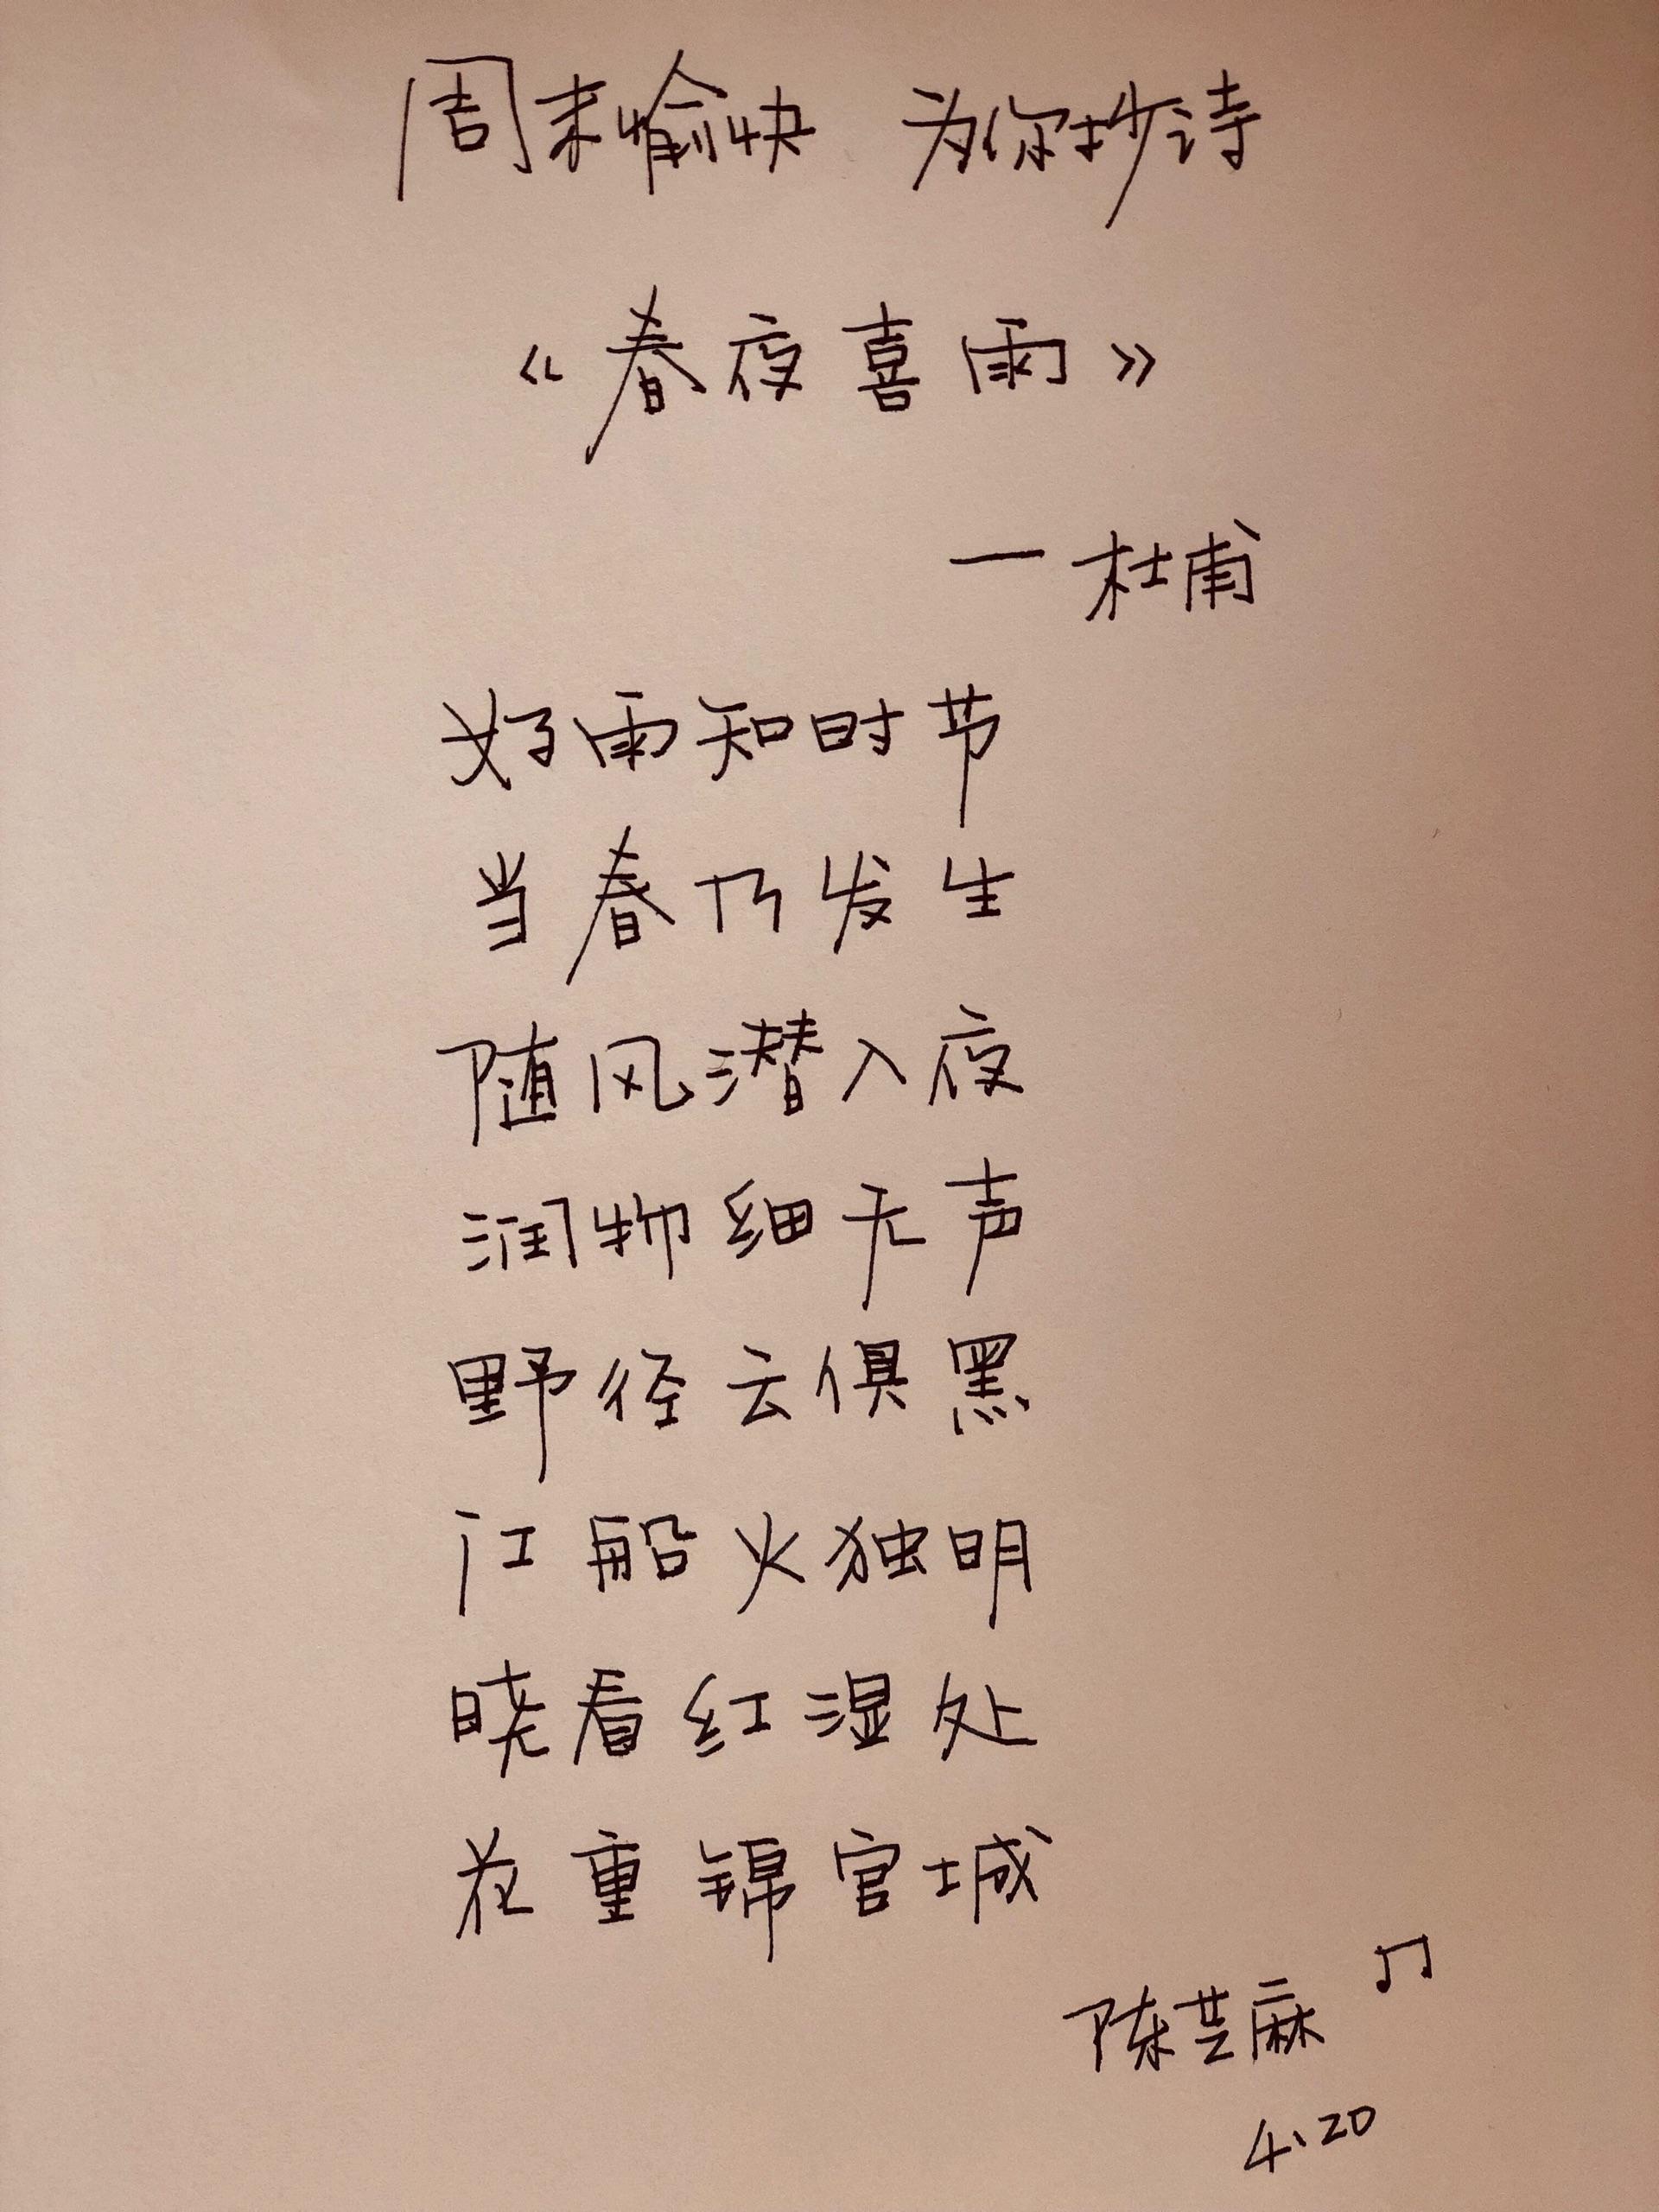 周末愉快 为你抄诗
《春夜喜雨》
一杜甫
好雨知时节
当春乃发生
随风潜入夜
润物细无声
野径云俱黑
江船火独明
晓看红湿处
花重锦官城
陈芝麻 ♫
4、20